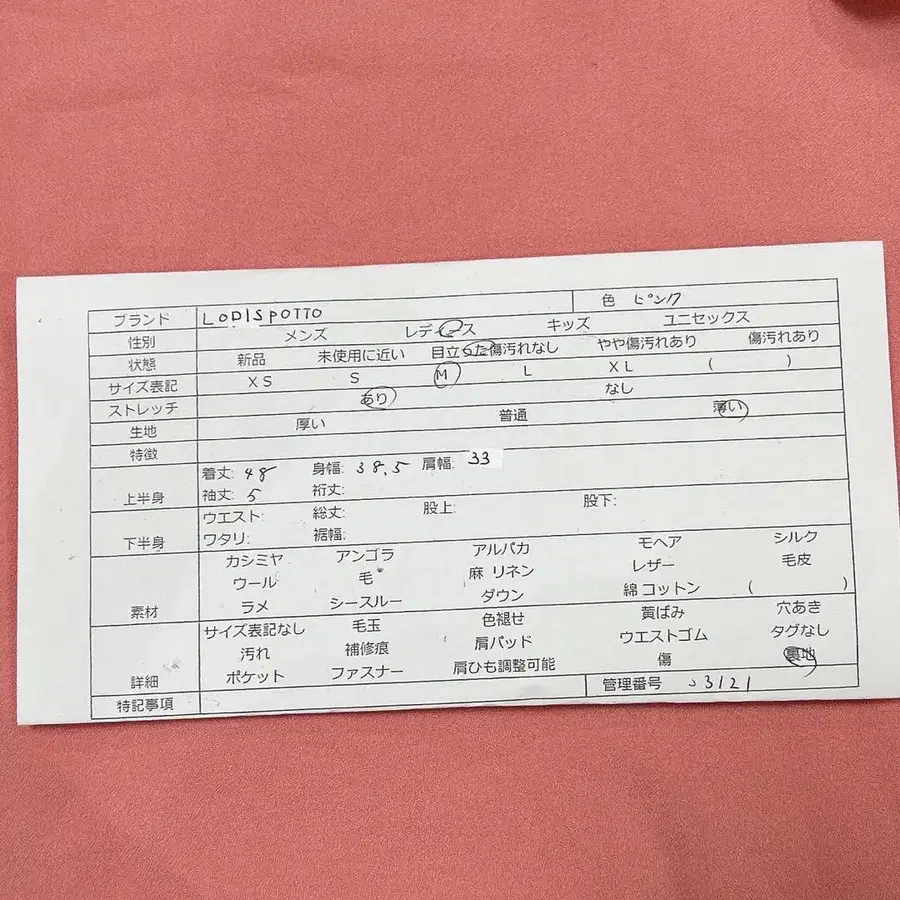 ブランド LODISPOTTO 色 ピンク
性別 メンズ レディース キッズ ユニセックス
状態 新品 未使用に近い 目立った傷汚れなし やや傷汚れあり 傷汚れあり
サイズ表記 XS S M L XL ( )
ストレッチ あり なし
生地 厚い 普通 薄い
特徴
上半身 着丈: 48 身幅: 38.5 肩幅: 33
袖丈: 5 裄丈:
下半身 ウエスト: 総丈: 股上: 股下:
ワタリ: 裾幅:
素材 カシミヤ アンゴラ アルパカ モヘア シルク
ウール 毛 麻 リネン レザー 毛皮
ラメ シースルー ダウン 綿 コットン ( )
詳細 サイズ表記なし 毛玉 色褪せ 黄ばみ 穴あき
汚れ 補修痕 肩パッド ウエストゴム タグなし
ポケット ファスナー 肩ひも調整可能 傷 裏地
特記事項 管理番号 3121